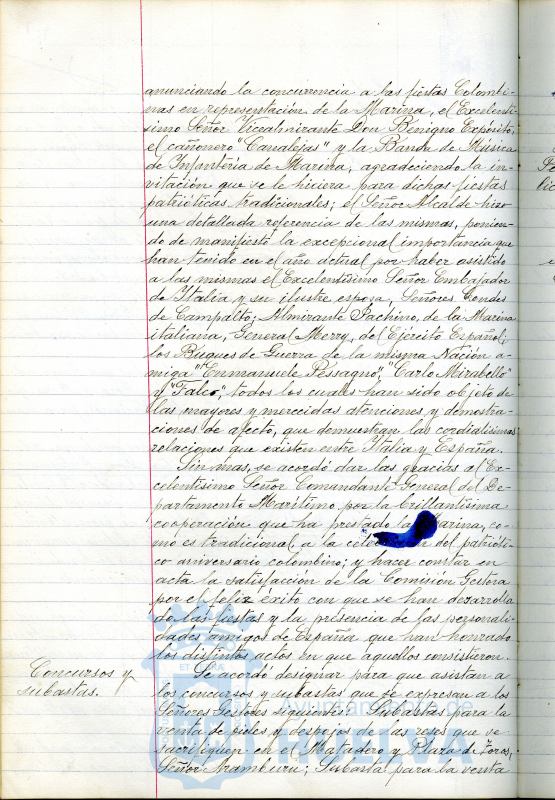 anunciando la concurrencia a las fiestas Colombi-
nas en representación de la Marina, el Excelentí-
simo Señor Vicealmirante Don Benigno Expósito,
el cañonero "Canalejas" y la Banda de Música
de Infantería de Marina, agradeciendo la in-
vitación que se le hiciera para dichas fiestas
patrióticas tradicionales; el Señor Alcalde hizo
una detallada referencia de las mismas, ponien-
do de manifiesto la excepcional importancia que
han tenido en el año actual por haber asistido
a las mismas el Excelentísimo Señor Embajador
de Italia y su ilustre esposa, Señores Condes
de Campalto; Almirante Iachino, de la Marina
italiana, General Merry, del Ejército Español;
los Buques de Guerra de la misma Nación a-
miga "Emmanuele Pessagno," "Carlo Mirabello"
y "Falco", todos los cuales han sido objeto de
las mayores y merecidas atenciones y demostra-
ciones de afecto, que demuestran las cordialísimas
relaciones que existen entre Italia y España.
Sin mas, se acordó dar las gracias al Ex-
celentísimo Señor Comandante General del De-
partamento Marítimo por la brillantísima
cooperación que ha prestado la Marina, co-
mo es tradicional, a la del patrióti-
co aniversario colombino; y hacer constar en
acta la satisfacción de la Comisión Gestora
por el feliz éxito con que se han desarrolla
do las fiestas y la presencia de las personali-
dades amigos de España que han honrado
los distintos actos en que aquellos consistieron.
Concursos y
subastas.
Se acordó designar para que asistan a
los concursos y subastas que se expresan a los
Señores Gestores siguientes: Subastas para la
venta de pieles y despojos de las reses que se
sacrifiquen en el Matadero y Plaza de Toros,
Señor Aramburu; Subasta para la venta
Ayuntamiento de
HUELVA